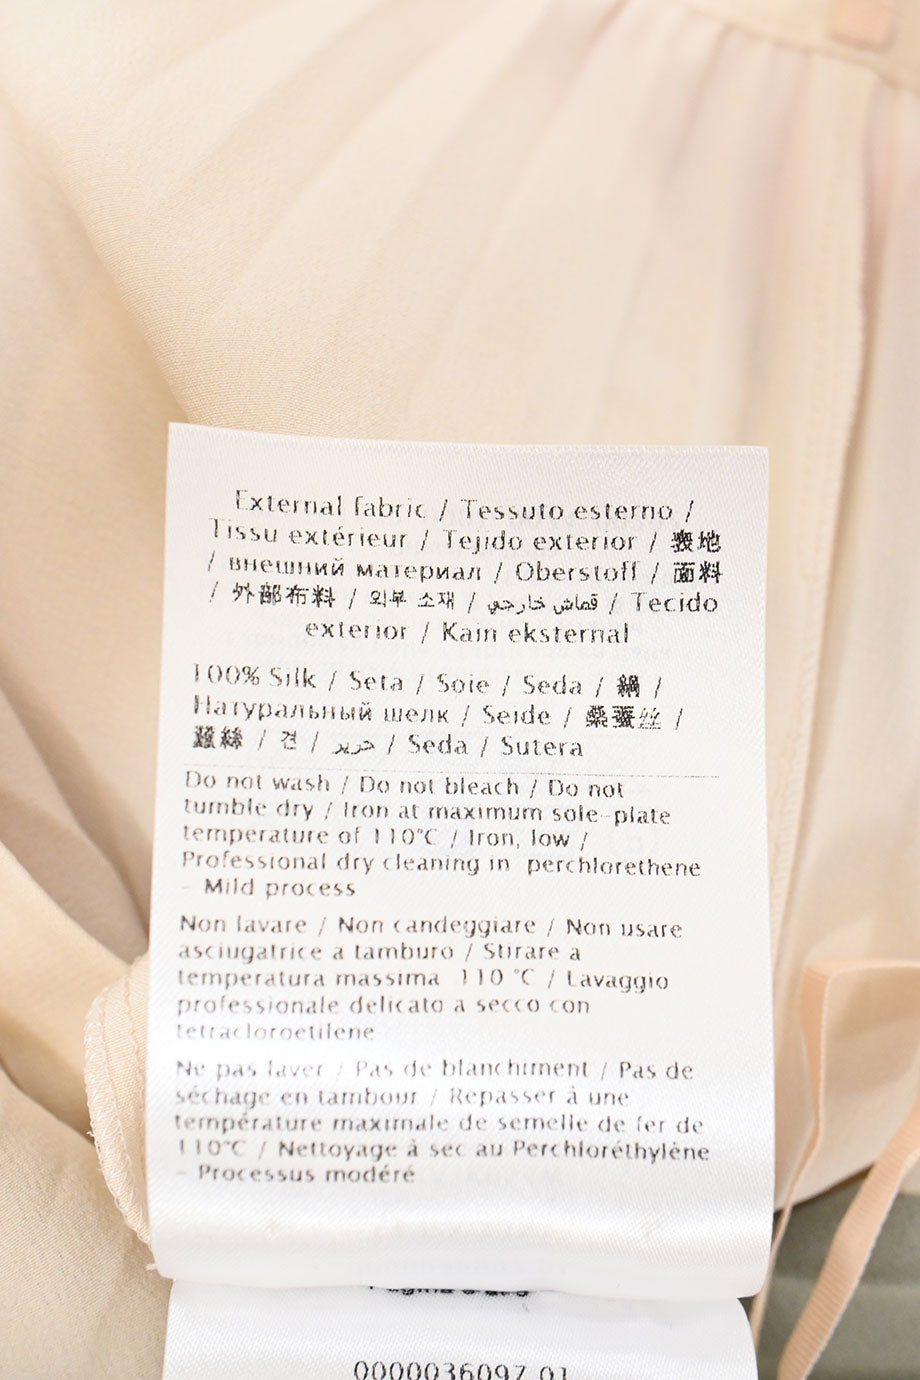 External fabric / Tessuto esterno /
Tissu extérieur / Tejido exterior / 表地
/ внешний материал / Oberstoff / 面料
/ 外部布料 / 외부 소재 / قماش خارجي / Tecido
exterior / Kain eksternal
100% Silk / Seta / Soie / Seda / 絹 /
Натуральный шелк / Seide / 桑蚕丝 /
蠶絲 / 견 / حرير / Seda / Sutera
Do not wash / Do not bleach / Do not
tumble dry / Iron at maximum sole-plate
temperature of 110°C / Iron, low /
Professional dry cleaning in perchlorethene
- Mild process
Non lavare / Non candeggiare / Non usare
asciugatrice a tamburo / Stirare a
temperatura massima 110 °C / Lavaggio
professionale delicato a secco con
tetracloroetilene
Ne pas laver / Pas de blanchiment / Pas de
séchage en tambour / Repasser à une
température maximale de semelle de fer de
110°C / Nettoyage à sec au Perchloréthylène
- Processus modéré
0000036097 01